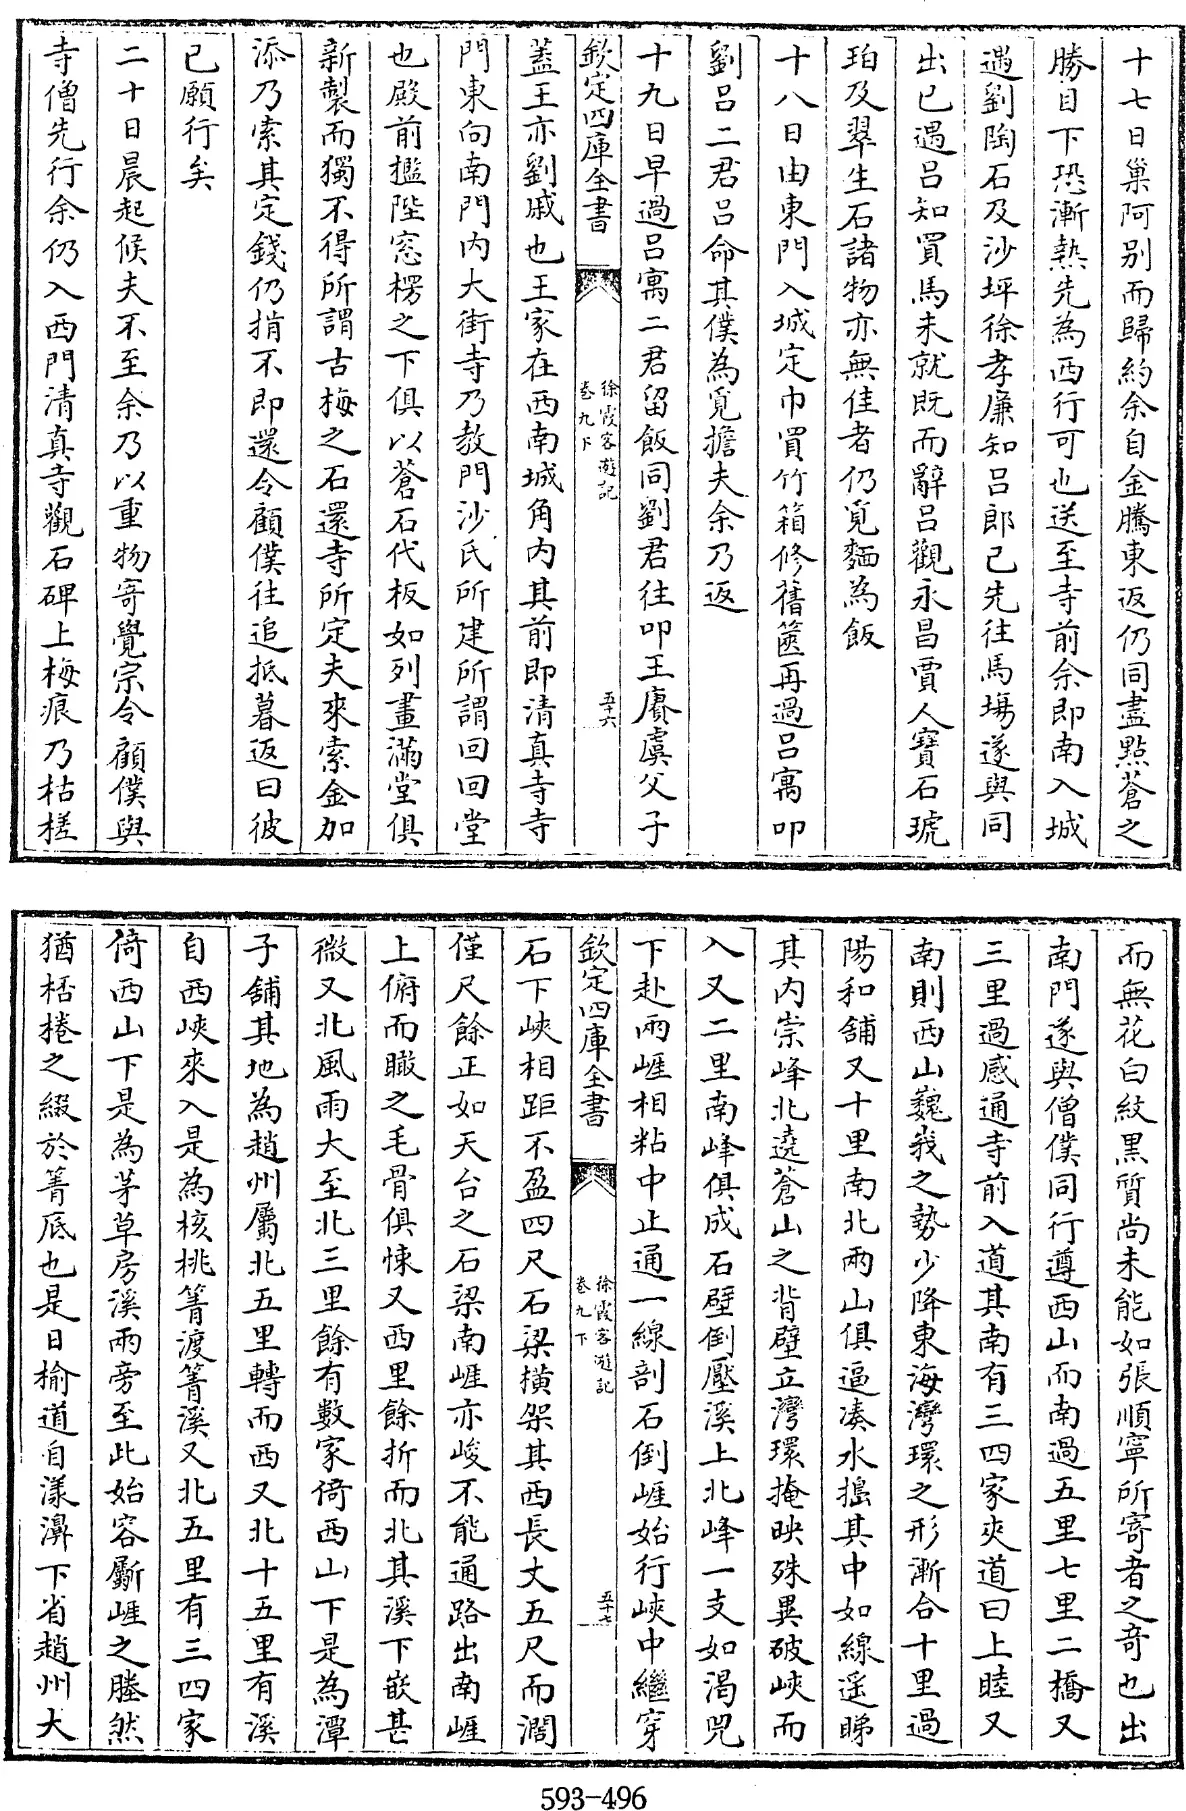 十七日巢阿别而歸約余自金騰東返仍同盡點蒼之
勝目下恐漸熱先為西行可也送至寺前余即南入城
遇劉陶石及沙坪徐孝廉知吕郎已先往馬場遂與同
出已遇吕知買馬未就既而辭吕觀永昌賈人寶石琥
珀及翠生石諸物亦無佳者仍覓麵為飯
十八日由東門入城定巾買竹箱修舊篋再過吕寓叩
劉吕二君吕命其僕為覓擔夫余乃返
十九日早過吕寓二君留飯同劉君往叩王賡虞父子
欽定四庫全書
徐霞客遊記
卷九下
五十六
蓋王亦劉戚也王家在西南城角内其前即清真寺寺
門東向南門内大街寺乃教門沙氏所建所謂回回堂
也殿前檻陛窓楞之下俱以蒼石代板如列畫滿堂俱
新製而獨不得所謂古梅之石還寺所定夫來索金加
添乃索其定錢仍掯不即還令顧僕往追抵暮返曰彼
已願行矣
二十日晨起候夫不至余乃以重物寄覺宗令顧僕與
寺僧先行余仍入西門清真寺觀石碑上梅痕乃枯槎
而無花白紋黑質尚未能如張順寧所寄者之竒也出
南門遂與僧僕同行遵西山而南過五里七里二橋又
三里過感通寺前入道其南有三四家夾道曰上睦又
南則西山巍峩之勢少降東海灣環之形漸合十里過
陽和舖又十里南北兩山俱逼凑水搗其中如線遥睇
其内崇峰北遶蒼山之背壁立灣環掩映殊異破峽而
入又二里南峰俱成石壁倒壓溪上北峰一支如渇兕
下赴兩崕相粘中止通一線剖石倒崕始行峽中繼穿
欽定四庫全書
徐霞客遊記
卷九下
五十七
石下峽相距不盈四尺石梁横架其西長丈五尺而濶
僅尺餘正如天台之石梁南崕亦峻不能通路出南崕
上俯而瞰之毛骨俱悚又西里餘折而北其溪下嵌甚
微又北風雨大至北三里餘有數家倚西山下是為潭
子舖其地為趙州屬北五里轉而西又北十五里有溪
自西峽來入是為核桃箐渡箐溪又北五里有三四家
倚西山下是為茅草房溪兩旁至此始容斸崕之塍然
猶桮棬之綴於箐底也是日榆道自漾濞下省趙州大
593-496